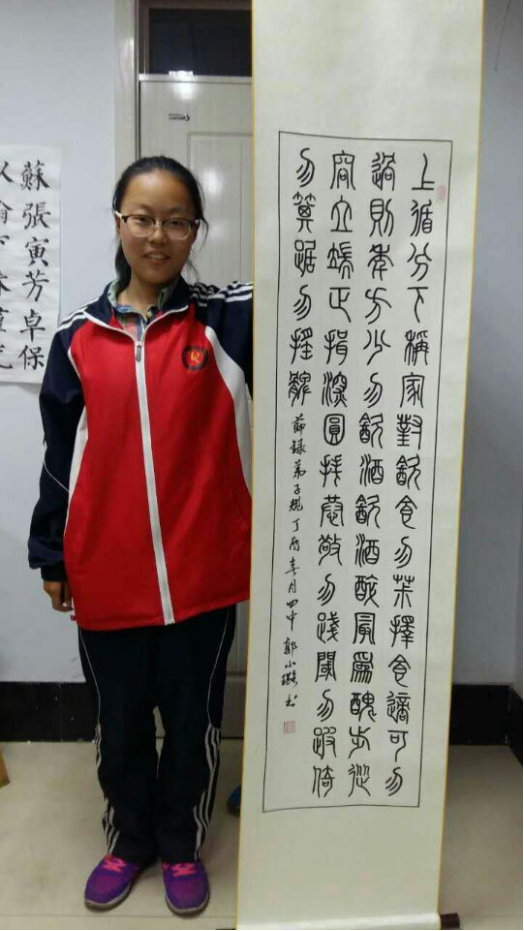 上循分下稱家對飲食勿柬擇食適可勿
過則年方少勿飲酒飲酒醉最爲醜步從
容立端正揖深圓拜恭敬勿踐閾勿跛倚
勿箕踞勿搖髀
節録弟子規丁酉春月四中郭小书
蘇張寅芳卓保